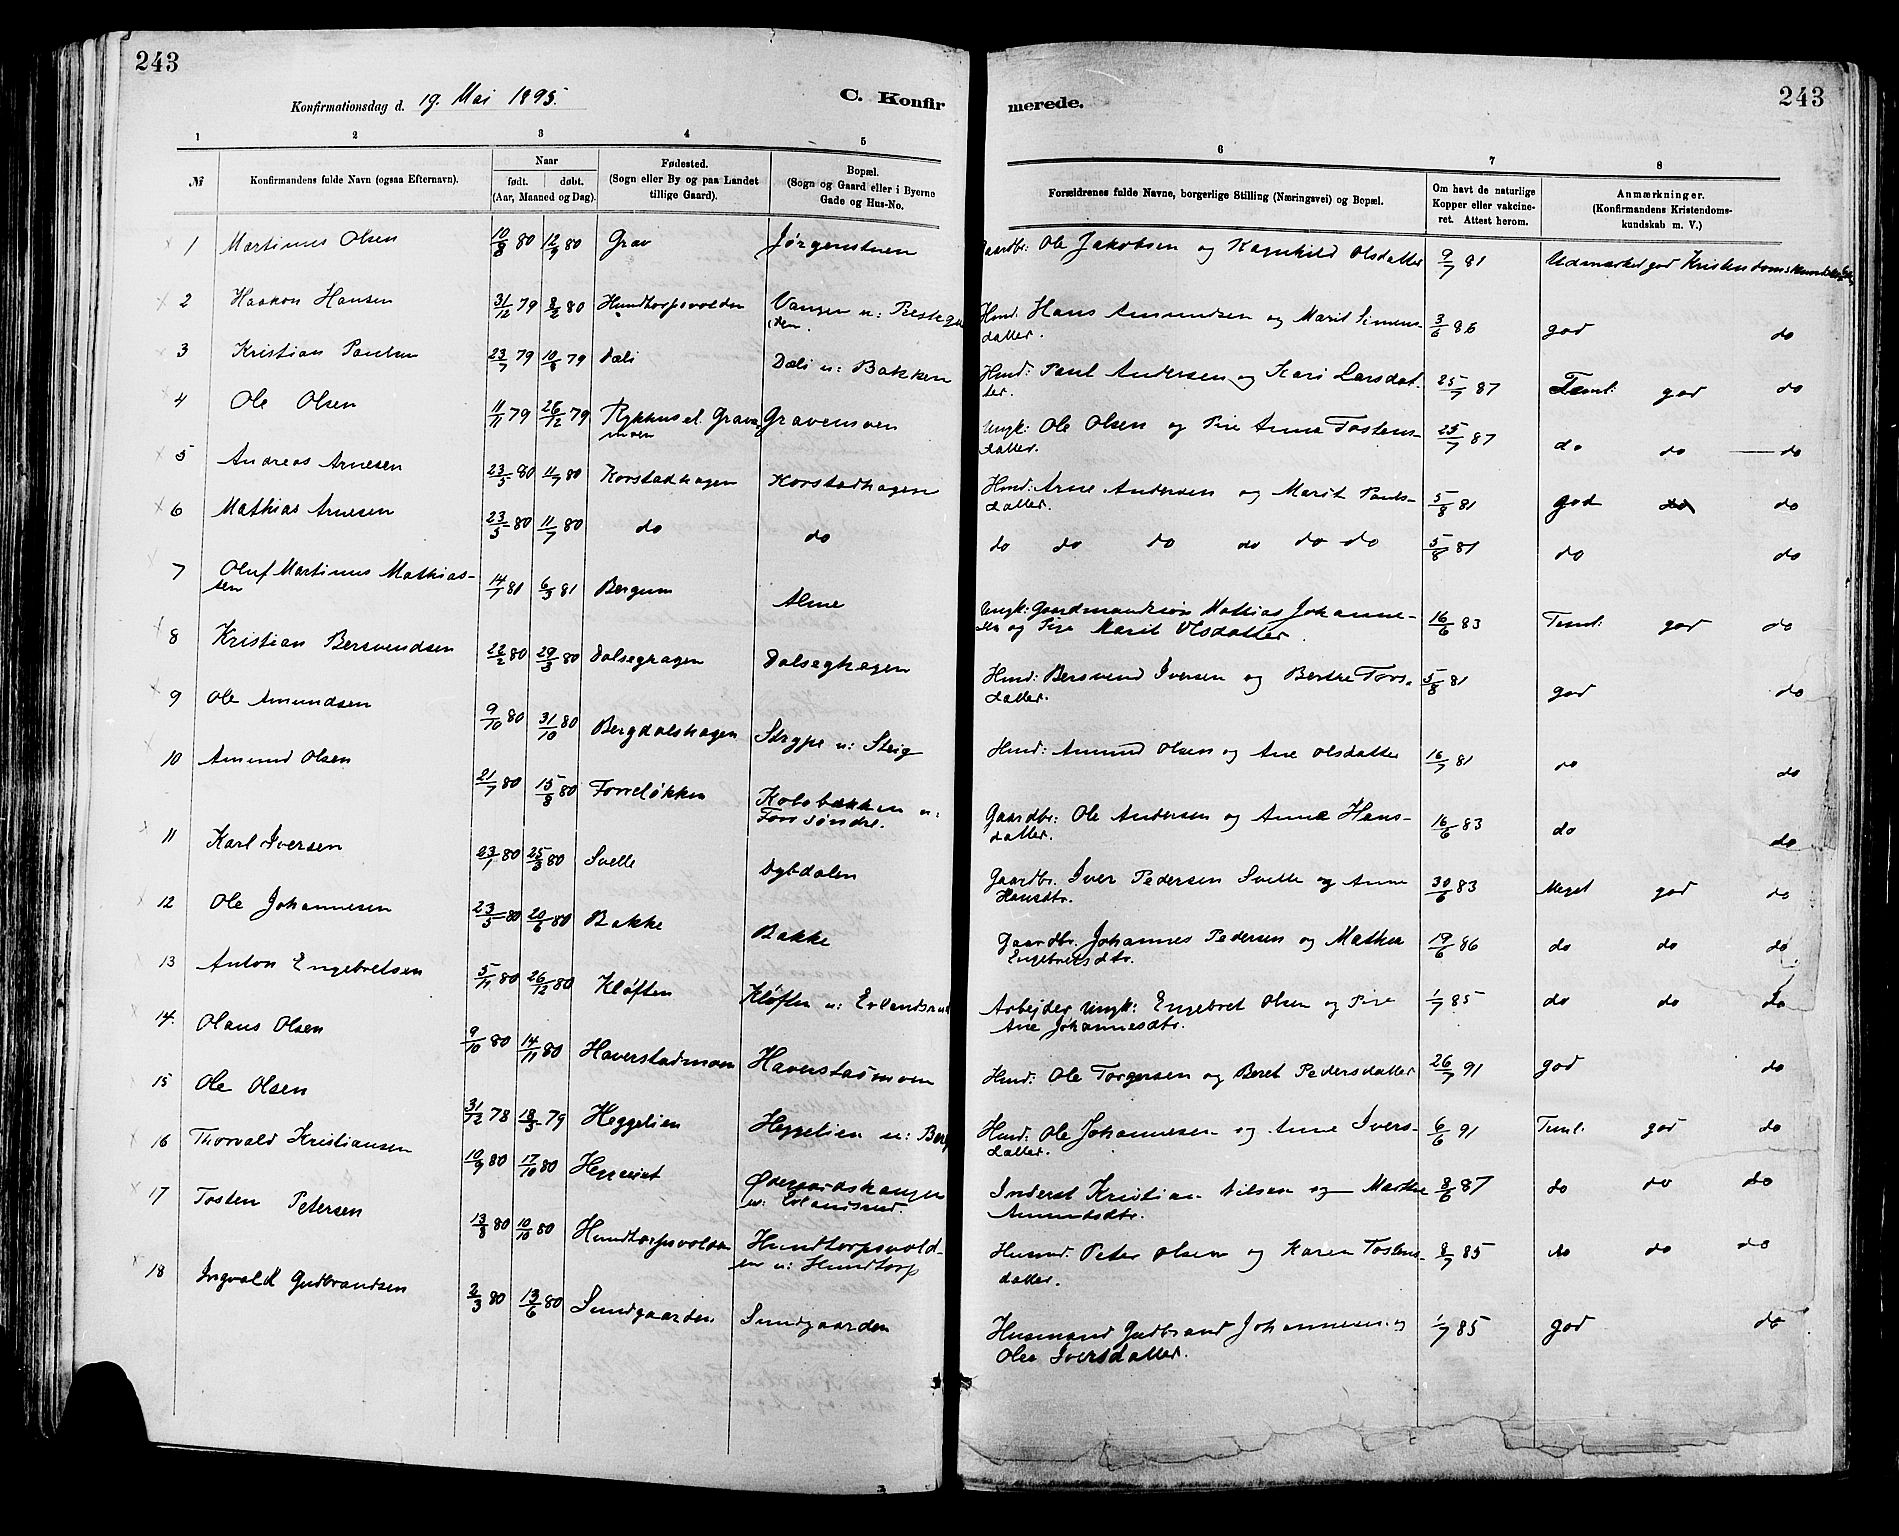 243
Konfirmationsdag d. 19. Mai 1895.
C. Konfir
merede.
243
1 2 3 4 5 6 7 8
№ Konfirmandens fulde Navn (ogsaa Efternavn). Naar født. døbt. (Aar, Maaned og Dag). Fødested. (Sogn eller By og paa Landet tillige Gaard). Bopæl. (Sogn og Gaard eller i Byerne Gade og Hus-No. Forældrenes fulde Navne, borgerlige Stilling (Næringsvei) og Bopæl. Om havt de naturlige Kopper eller vakcineret. Attest herom. Anmærkninger. (Konfirmandens Kristendomskundskab m. V.)
1 Martinus Olsen 10/8 80 12/9 80 Grav Jørgenstuen Gaardbr: Ole Jakobsen og Ragnhild Olsdatter 9/7 81 Udmærket god
2 Haakon Hansen 31/12 79 8/2 80 Hundtorpsvolden Vangen u: Hmd: Hans Amundsen og Marit Simens-
datter. 3/6 86 god do
3 Kristian Paulsen 23/7 79 10/8 79 Dæli Dæli u: Bakken Hmd: Paul Andersen og Kari Larsdat-
ter. 25/7 87 Teml: god do
4 Ole Olsen 11/11 79 26/12 79 Rykhus el. Grave
moen Gravemoen Ungk: Ole Olsen og Pige Anne Tostens-
datter. 25/7 87 do do do
5 Andreas Arnesen 23/5 80 11/7 80 Korstadhagen Korstadhagen Hmd: Arne Andersen og Marit Pauls-
datter. 5/8 81 god do do
6 Mathias Arnesen 23/5 80 11/7 80 do do do do do do do do 5/8 81 do do
7 Oluf Martinus Mathias-
sen 14/1 81 6/3 81 Bergum Alme Ungk: Gaardmandssøn Mathias Johanne-
sen og Pige Marit Olsdatter. 16/6 83 Teml: god do
8 Kristian Bersvendsen 22/2 80 29/3 80 Dalseghagen Dalseghagen Hmd: Bersvend Iversen og Berthe Tors-
datter. 5/8 81 god do
9 Ole Amundsen 9/10 80 31/10 80 Bergdalshagen Strype u: Steig Hmd: Amund Olsen og Ane Olsdatter 16/7 81 do do
10 Amund Olsen 21/7 80 15/8 80 Forreløkken Kolobækken u:
Forr søndre. Gaardbr: Ole Andersen og Anne Hans-
datter. 16/6 83 do do
11 Karl Iversen 23/1 80 25/3 80 Svelle Dybdalen Gaardbr. Iver Pedersen Svelle og Anne
Hansdtr. 30/6 83 Meget god do
12 Ole Johannesen 23/5 80 20/6 80 Bakke Bakke Gaardbr. Johannes Pedersen og Mathea
Engebretsdtr. 19/6 86 do do do
13 Anton Engebretsen 5/11 80 26/12 80 Kløften Kløften u: Erlandsrud Arbejder Ungk: Engebret Olsen og Pige
Ane Johannesdtr. 1/7 85 do do do
14. Olaus Olsen 9/10 80 14/11 80 Haverstadmoen Haverstadmoen Hmd: Ole Torgersen og Beret Pedersdatter 26/7 91 god do
15 Ole Olsen 31/12 78 18/3 79 Heggelien Heggelien u: Berg Hmd: Ole Johannesen og Anne Ivers-
datter. 6/6 91 Teml: god do
16 Thorvald Kristiansen 10/9 80 17/10 80 Øvegardshaugen
u: Erlandsrud. Inderst Kristian Nilsen og Marthe
Amundsdtr. 8/6 87 do do do
17 Tosten Petersen 13/8 80 10/10 80 Hundtorpsvolden Hundtorpsvold-
en u: Hundtorp Husmd: Peter Olsen og Karen Tostens-
datter. 8/7 85 do do do
18 Ingvald Gudbrandsen 2/3 80 13/6 80 Sundgaarden Sundgaarden Husmand Gudbrand Johannesen og
Olea Iversdatter. 1/7 85 god do